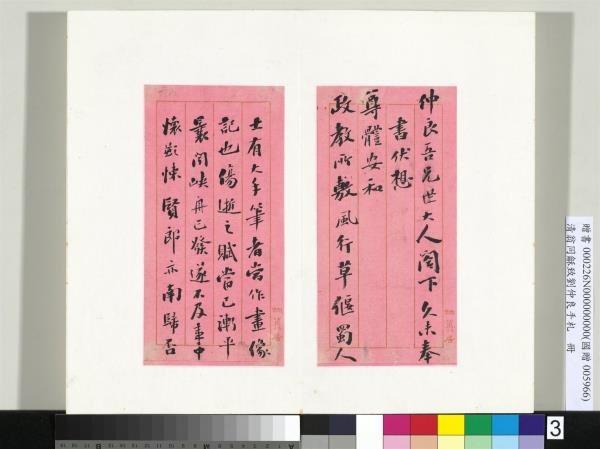 仲良吾兄世大人閣下久未奉
書伏想
尊體安和
政教所敷風行草偃蜀人
士有大手筆者當作畫像
記也傷逝之賦當已漸平
曩聞峽舟已發遂不及車中
悵歎悚賢郎亦南歸否
贈書 000226N000000000(國贈 005966)
清翁同龢致劉仲良手札 冊
3